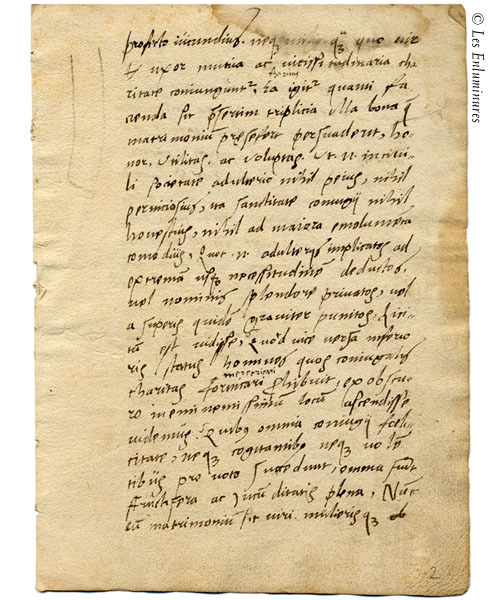 profecto iucundius. neq
uxor mutua ac uicissitudinaria cha
ritate coniunguntr, ita igitr quanti fa
cienda sit pserim triplicia illa bona q
matrimonium presefert persuadent, ho
nor, utilitas, ac voluptas. Ut n inciui
li societate adulterio nihil peius, nihil
perniciosius, ita sanctitate coniugii nihil
honestius, nihil ad maiora emolumenta
comodius, Quot n. adulteriis implicatos ad
extremam usq necessitudine deductos,
vel nominis splendore priuatos, vel
a superis quide grauiter punitos, lice
tu est uidisse, Quod uice uersa inferio
ris status homines quos coniugalis
charitas phibuit, ex obscu
ro in eminentissimum locu ascendisse
uidemus. Quibus omnia coniugii feli
citate, neq cogitantibs neq uole
tibus pro uoto succedunt, omnia sunt
fructifera ac iucu ditatis plena, Nuc
cu matrimonium sit uiri mulierisq
2
© Les Enluminures